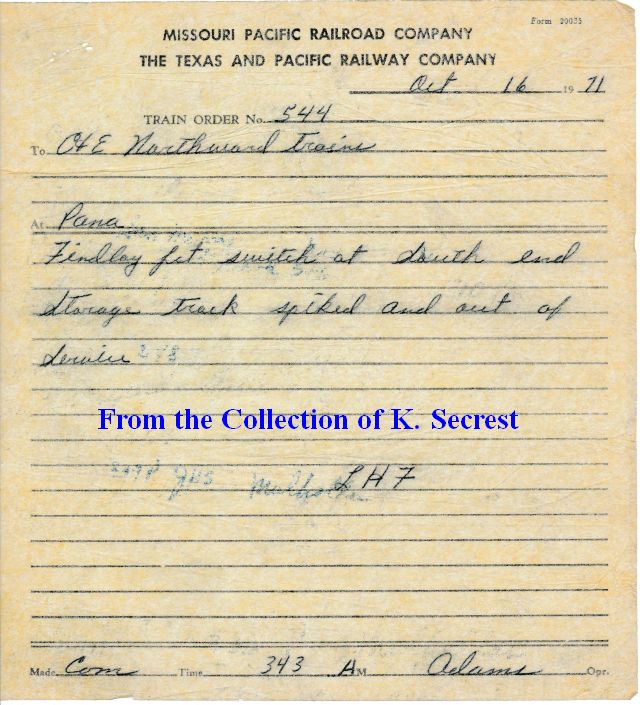 Form 20035
MISSOURI PACIFIC RAILROAD COMPANY
THE TEXAS AND PACIFIC RAILWAY COMPANY
Oct 16 1971
TRAIN ORDER No. 544
To C&E Northward trains
At Pana
Findlay Jct switch at South end
Storage track spiked and out of
Service
From the Collection of K. Secrest
LHF
Made Com Time 343 AM Adams Opr.